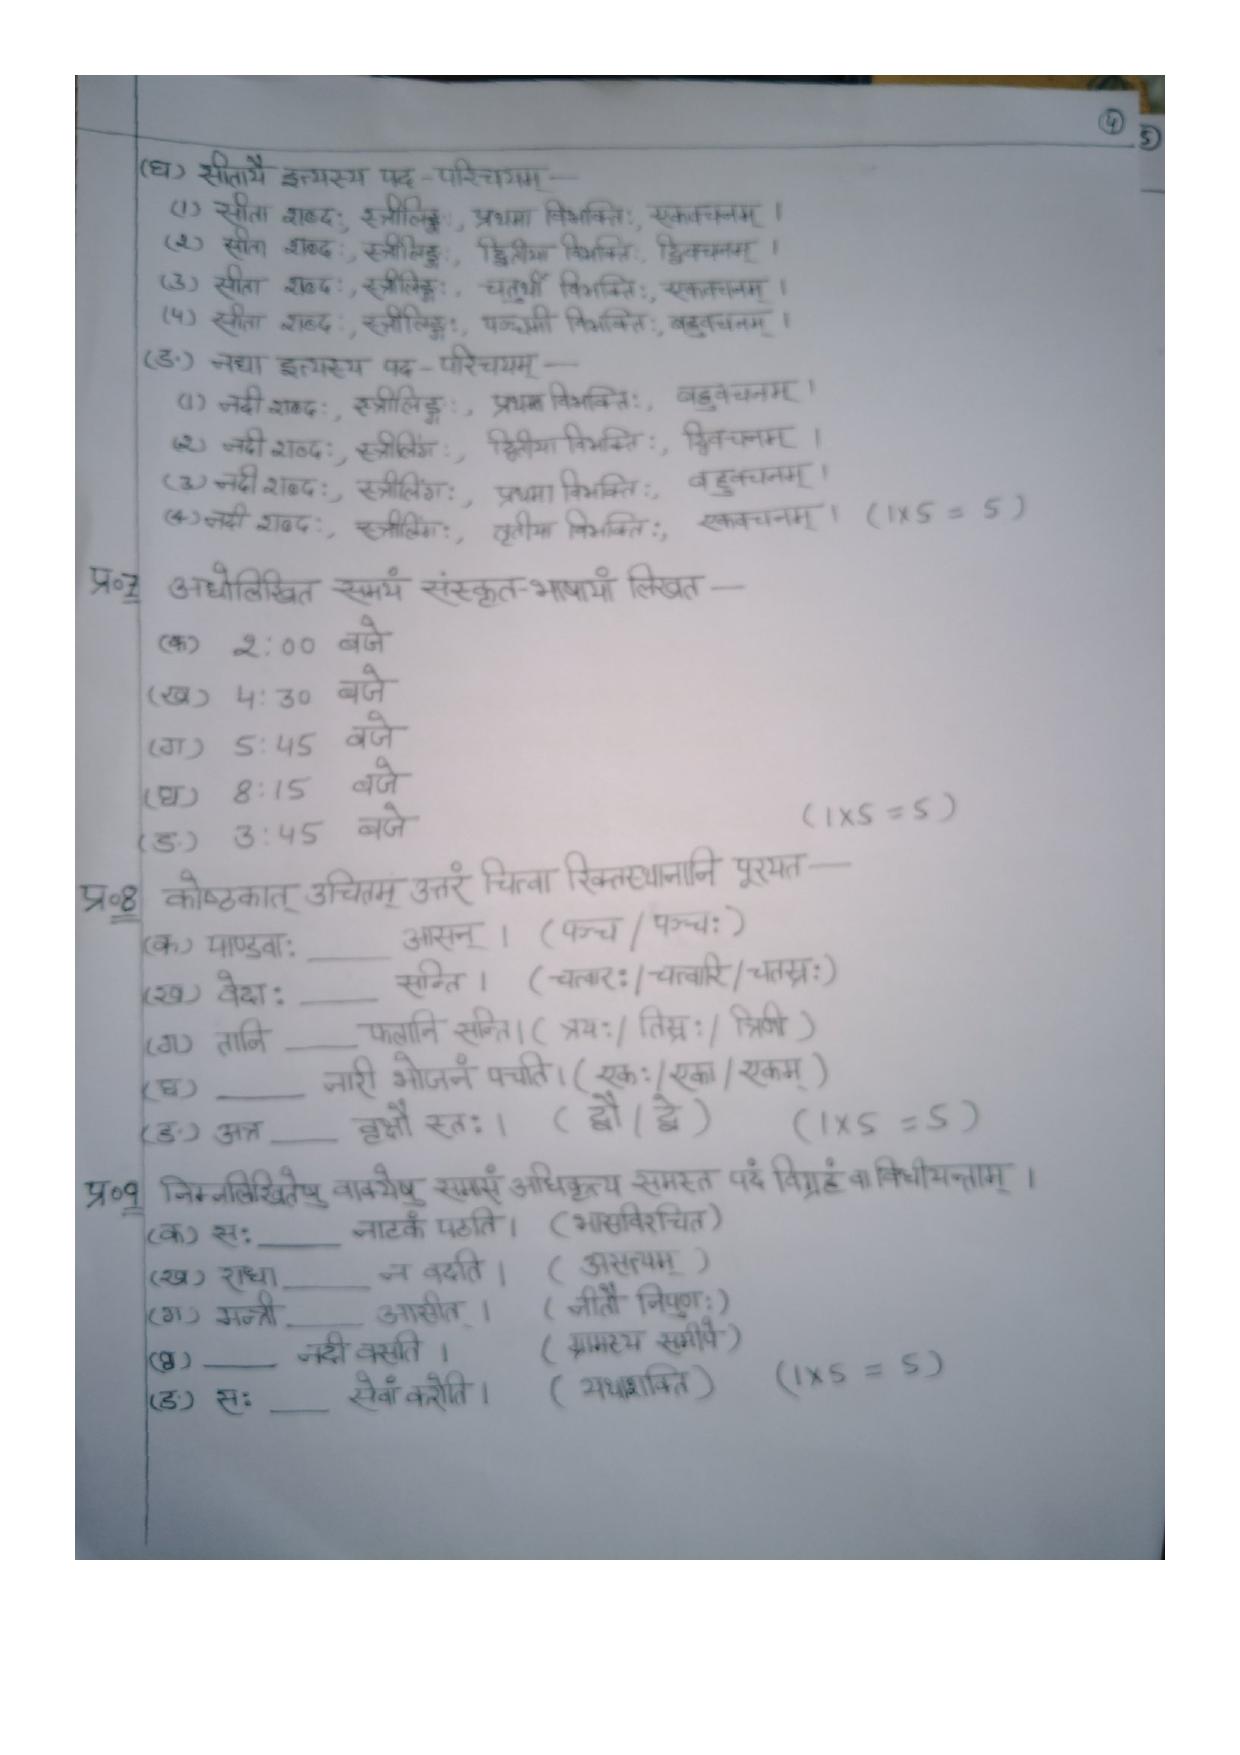 (4)
5
(घ) सीतायै इत्यस्य पद-परिचयम् —
(1) सीता शब्दः, स्त्रीलिङ्गः, प्रथमा विभक्तिः, एकवचनम् ।
(2) सीता शब्दः, स्त्रीलिङ्गः, द्वितीया विभक्तिः, द्विवचनम् ।
(3) सीता शब्दः, स्त्रीलिङ्गः, चतुर्थी विभक्तिः, एकवचनम् ।
(4) सीता शब्दः, स्त्रीलिङ्गः, पञ्चमी विभक्तिः, बहुवचनम् ।
(ङ) नद्या इत्यस्य पद-परिचयम् —
(1) नदी शब्दः, स्त्रीलिङ्गः, प्रथमा विभक्तिः, बहुवचनम् ।
(2) नदी शब्दः, स्त्रीलिंगः, द्वितीया विभक्तिः, द्विवचनम् ।
(3) नदी शब्दः, स्त्रीलिंगः, प्रथमा विभक्तिः, बहुवचनम् ।
(4) नदी शब्दः, स्त्रीलिंगः, तृतीया विभक्तिः, एकवचनम् । (1×5 = 5)
प्र०7 अधोलिखित समयं संस्कृत-भाषायां लिखत —
(क) 2:00 बजे
(ख) 4:30 बजे
(ग) 5:45 बजे
(घ) 8:15 बजे
(ङ) 3:45 बजे (1×5 = 5)
प्र०8 कोष्ठकात् उचितम् उत्तरं चित्वा रिक्तस्थानानि पूरयत —
(क) पाण्डवाः ____ आसन् । (पञ्च / पञ्चः)
(ख) वेदाः ____ सन्ति । (चत्वारः/चत्वारि/चतस्रः)
(ग) तानि ____ फलानि सन्ति। ( त्रयः/ तिस्रः/ त्रिणी )
(घ) ____ नारी भोजनं पचति। ( एकः/एका/एकम् )
(ङ) अत्र ____ वृक्षौ स्तः । ( द्वौ / द्वे ) (1×5 = 5)
प्र०9 निम्नलिखितेषु वाक्येषु समासं अधिकृत्य समस्त पदं विग्रहं वा विधीयन्ताम् ।
(क) सः ____ नाटकं पठति । (भासविरचित)
(ख) राधा ____ न वदति । ( असत्यम् )
(ग) मन्त्री ____ आसीत् । ( नीतौ निपुणः)
(घ) ____ नदी वसति । ( ग्रामस्य समीपे)
(ङ) सः ____ सेवां करोति । ( यथाशक्ति) (1×5 = 5)